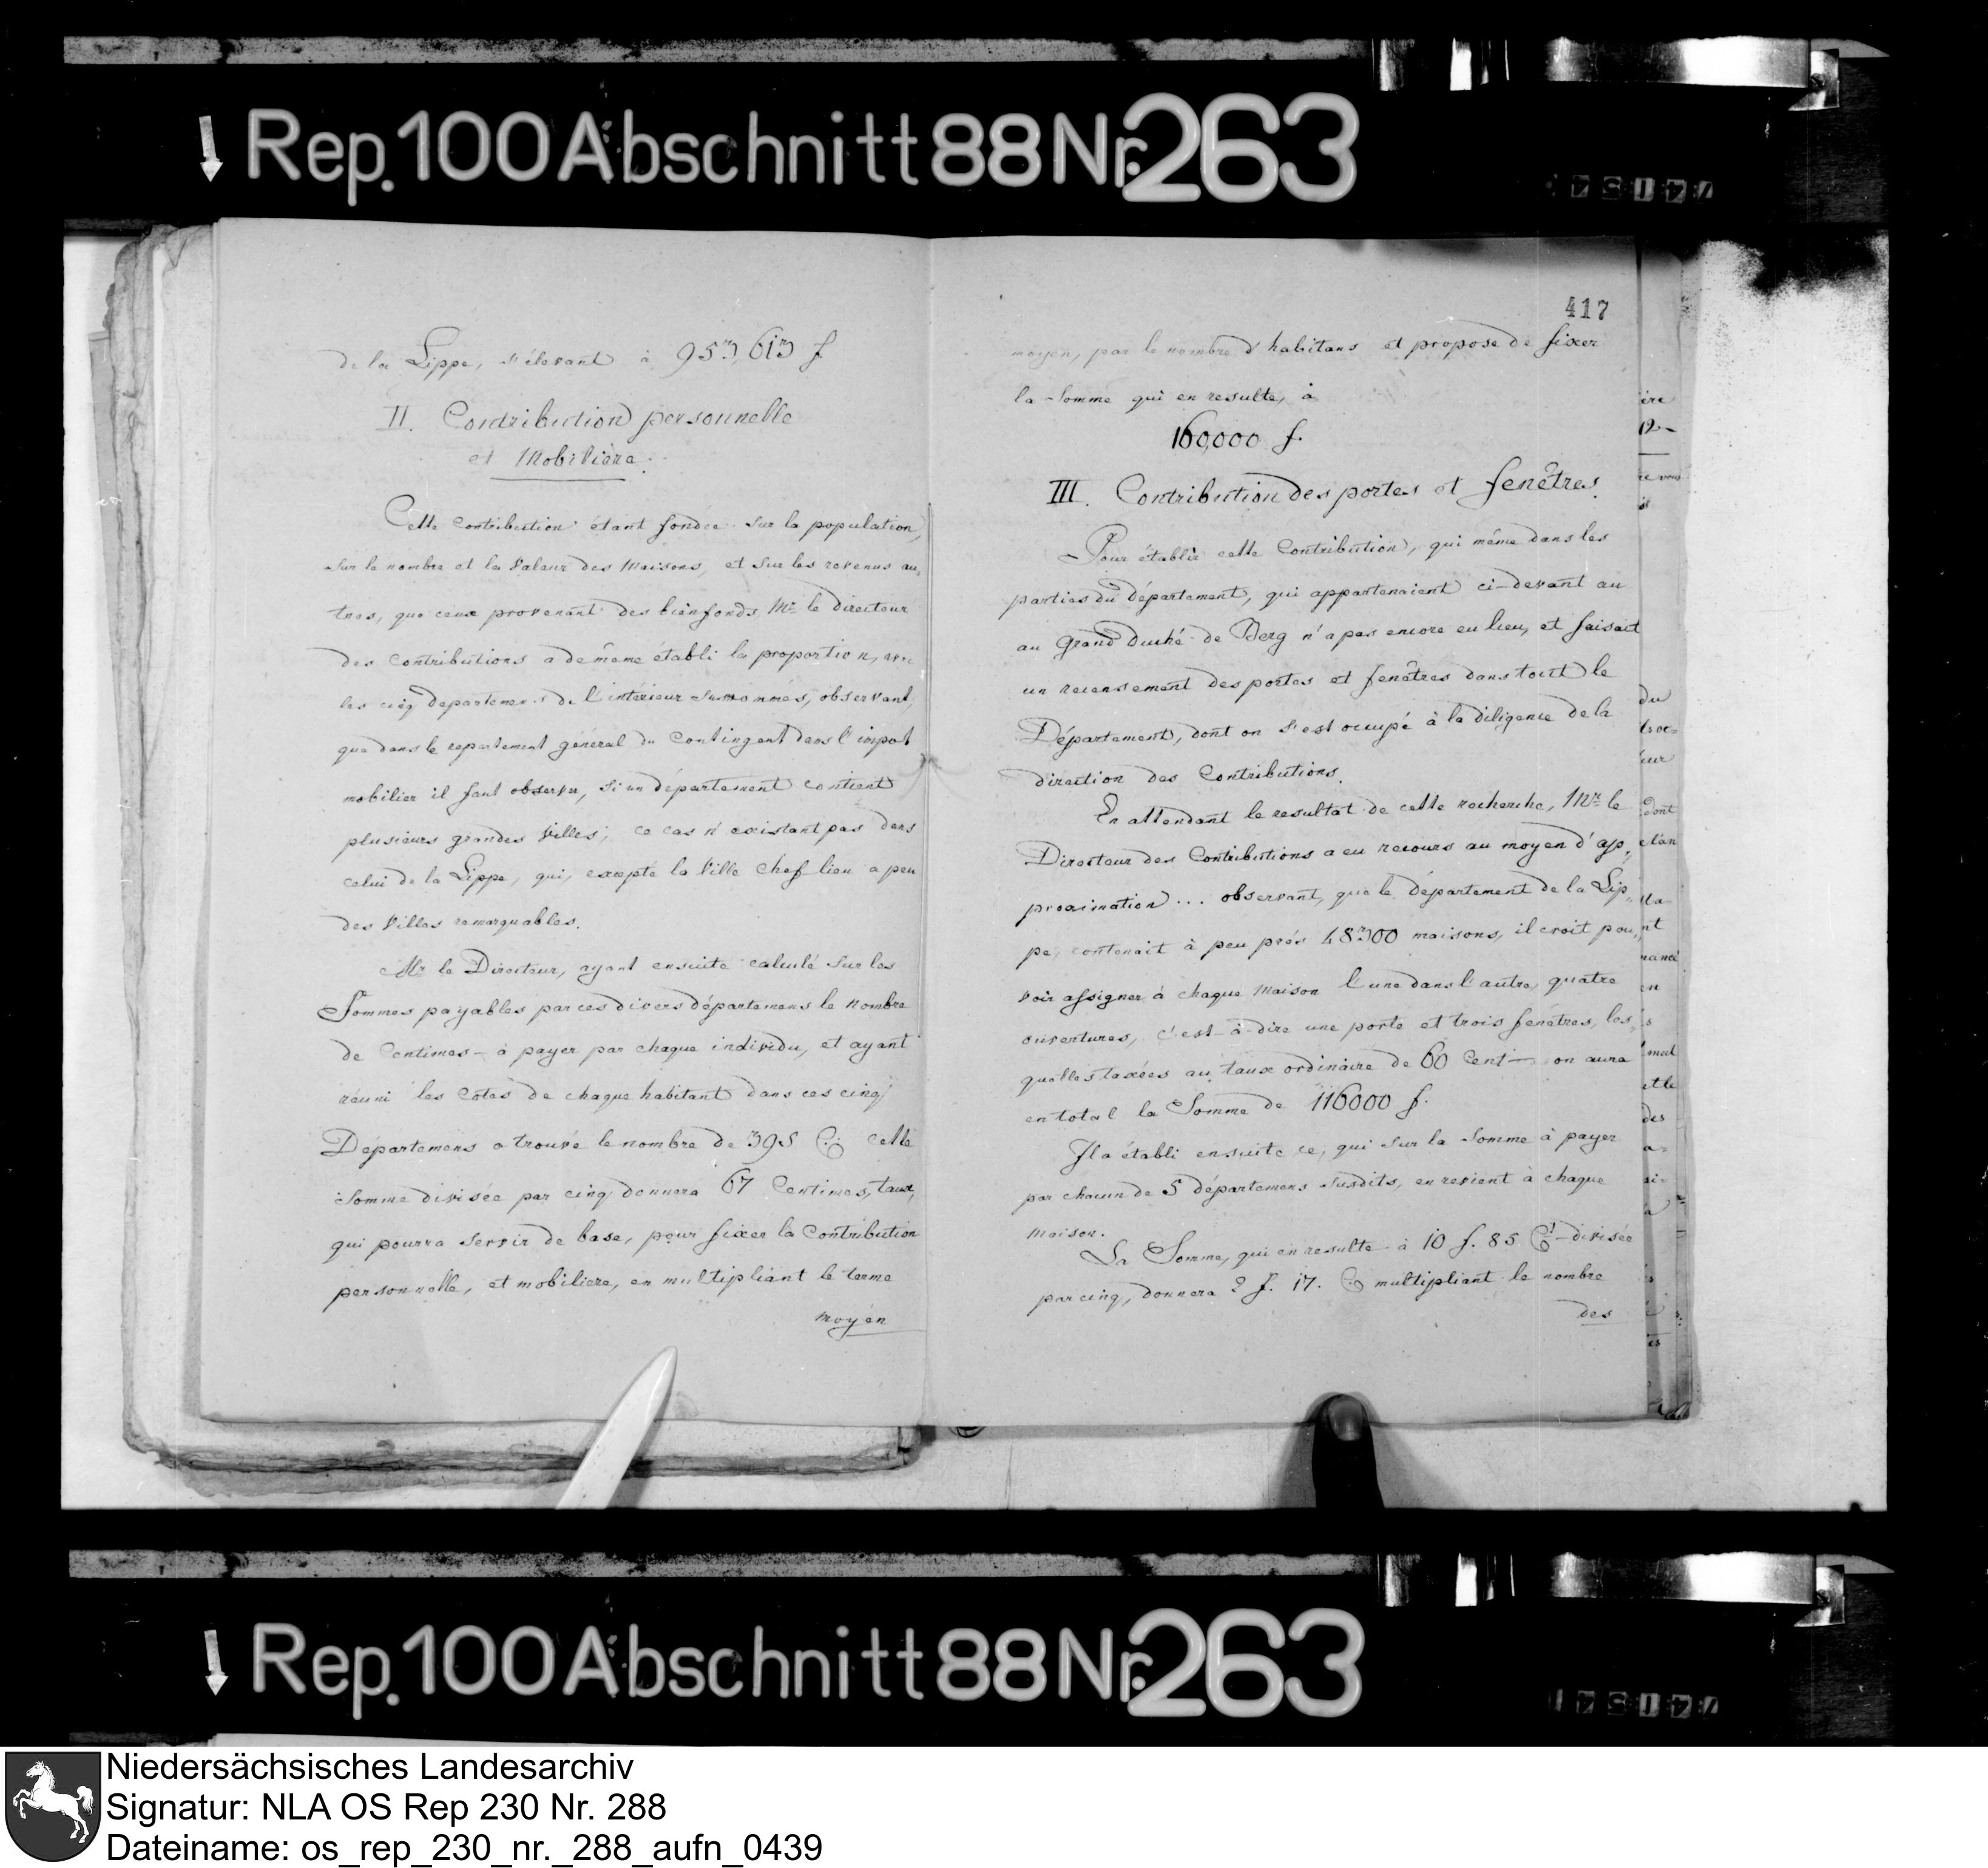 Rep. 100 Abschnitt 88 Nr. 263
de la Lippe, s'élevant à 953,613 f
II. Contribution personnelle
et Mobilière.
Cette contribution étant fondée sur la population,
sur le nombre et la valeur des Maisons, et sur les revenus au„
tres, que ceux provenant des bienfonds, Mr. le directeur
des Contributions a de même établi la proportion, avec
les cinq départemens de l'intérieur susnommés, observant,
que dans le repartement général du Contingent dans l'impot
mobilier il faut observer, si un département contient
plusieurs grandes villes; ce cas n'existant pas dans
celui de la Lippe, qui, excepté la ville Chef lieu a peu
des villes remarquables.
Mr. le Directeur, ayant ensuite calculé sur les
Sommes payables par ces divers départemens le nombre
de Centimes à payer par chaque individu, et ayant
réuni les Cotes de chaque habitant dans ces cinq
Départemens a trouvé le nombre de 395 C. cette
Somme divisée par cinq donnera 67 Centimes, taux,
qui pourra servir de base, pour fixer la Contribution
personnelle, et mobiliere, en multipliant le terme
moyen
417
moyen, par le nombre d'habitans et propose de fixer
la Somme qui en resulte, à
160,000 f.
III. Contribution des portes et fenêtres.
Pour établir cette Contribution, qui même dans les
parties du département, qui appartenaient ci-devant au
au grand Duché de Berg n'a pas encore eu lieu, et faisait
un recensement des portes et fenêtres dans tout le
Département, dont on s'est occupé à la diligence de la
direction des Contributions.
En attendant le resultat de cette recherche, Mr. le
Directeur des Contributions a eu recours au moyen d'ap„
proximation ... observant, que le département de la Lip„
pe, contenait à peu prés 48300 maisons, il croit pou„
voir assigner à chaque Maison l'une dans l'autre, quatre
ouvertures, c'est-à-dire une porte et trois fenêtres, les„
quelles taxées au taux ordinaire de 60 Cent on aura
en total la Somme de 116000 f.
Il a établi ensuite ce, qui sur la Somme à payer
par chacun de 5 départemens susdits, en revient à chaque
Maison.
La Somme, qui en resulte à 10 f. 85 Ct divisée
par cinq, donnera 2 f. 17. C multipliant le nombre
des
Rep. 100 Abschnitt 88 Nr. 263
Niedersächsisches Landesarchiv
Signatur: NLA OS Rep 230 Nr. 288
Dateiname: os_rep_230_nr._288_aufn_0439